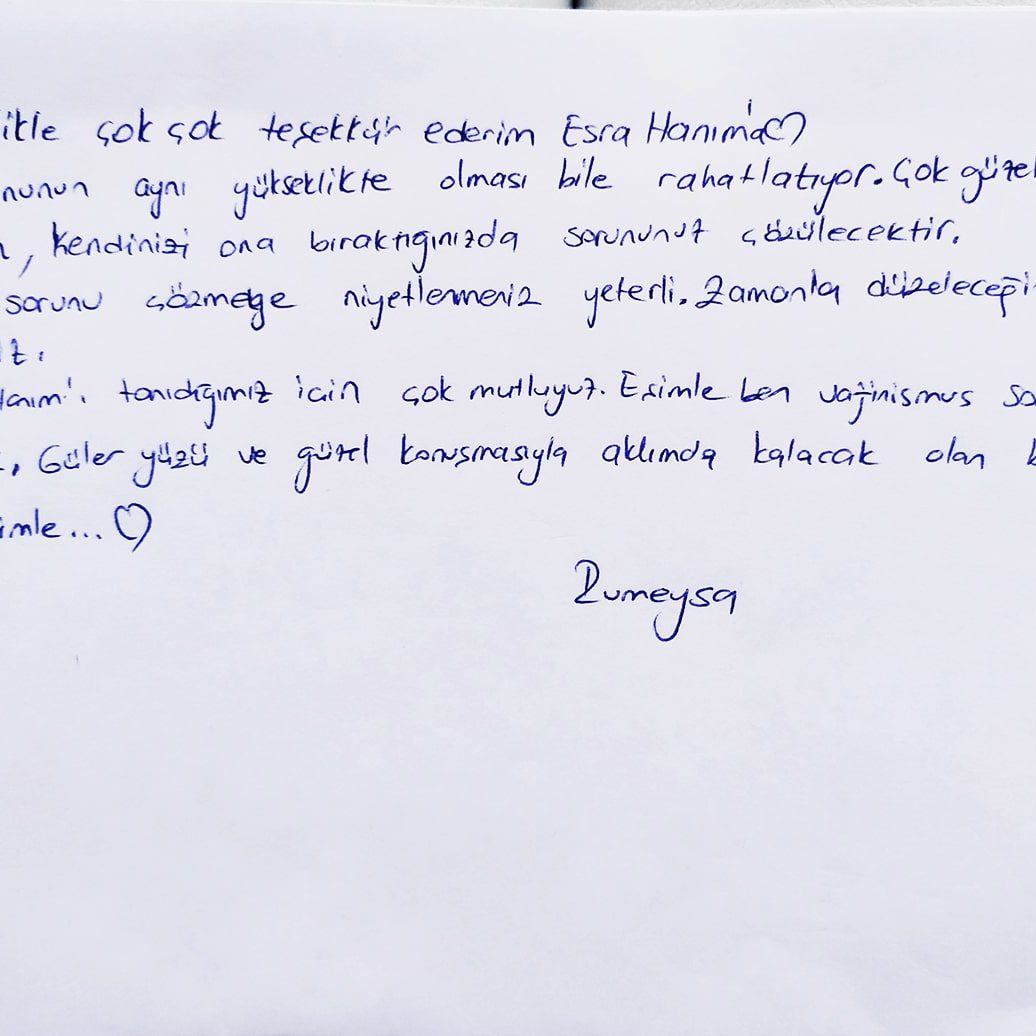 ikle çok çok teşekkür ederim Esra Hanım'a♡
nunun aynı yükseklikte olması bile rahatlatıyor. Çok güzel
, kendinizi ona bıraktığınızda sorununuz çözülecektir.
sorunu çözmeğe niyetlenmeniz yeterli. Zamanla düzeleceği
z.
anım'ı tanıdığımız icin çok mutluyuz. Eşimle ben vajinismus so
. Güler yüzü ve güzel konuşmasıyla aklımda kalacak olan b
imle... ♡
Rumeysa